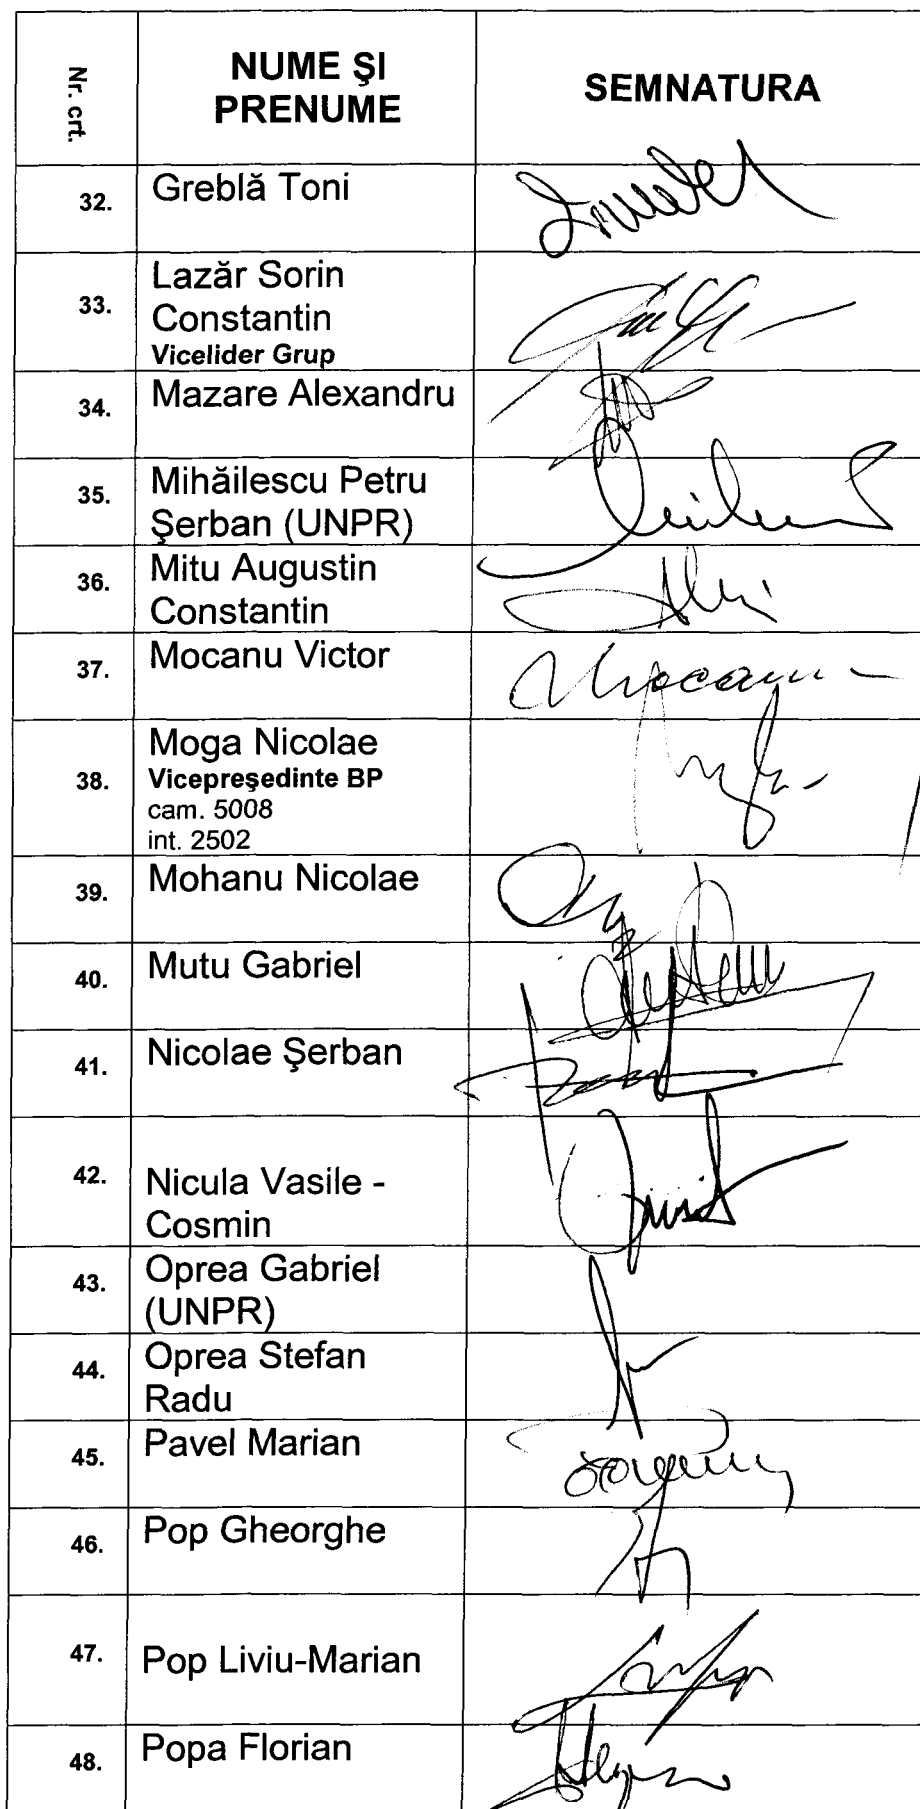 Nr. crt.
NUME ŞI
PRENUME
SEMNATURA
32.
Greblă Toni
33.
Lazăr Sorin
Constantin
Vicelider Grup
34.
Mazare Alexandru
35.
Mihăilescu Petru
Şerban (UNPR)
36.
Mitu Augustin
Constantin
37.
Mocanu Victor
Mocanu
38.
Moga Nicolae
Vicepreşedinte BP
cam. 5008
int. 2502
39.
Mohanu Nicolae
40.
Mutu Gabriel
41.
Nicolae Şerban
42.
Nicula Vasile -
Cosmin
43.
Oprea Gabriel
(UNPR)
44.
Oprea Stefan
Radu
45.
Pavel Marian
46.
Pop Gheorghe
47.
Pop Liviu-Marian
48.
Popa Florian